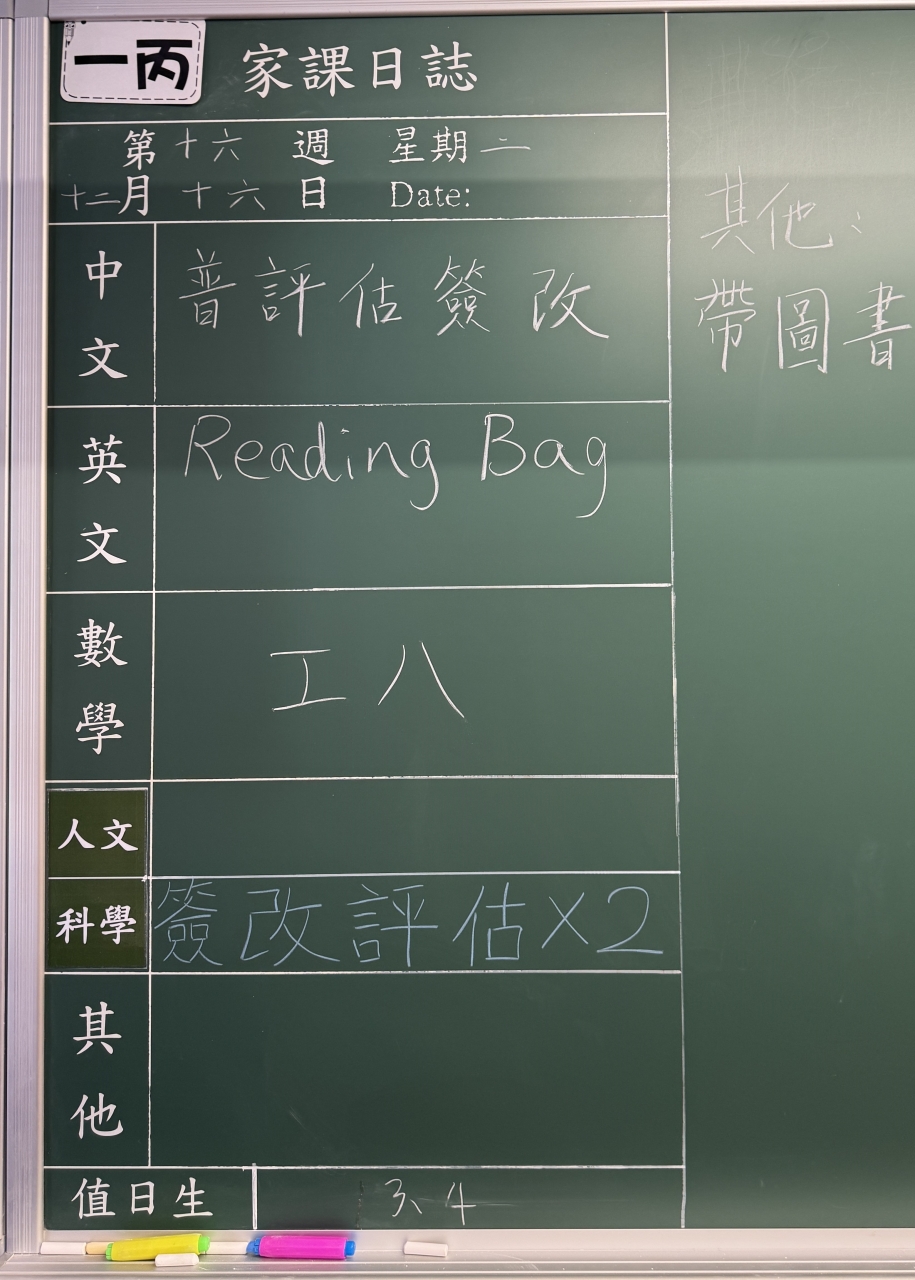 一丙 家課日誌
第十六週 星期二
十二月十六日 Date:
中文 普評估簽改
英文 Reading Bag
數學 工八
人文
科學 簽改評估×2
其他
值日生 3、4
其他：
帶圖書